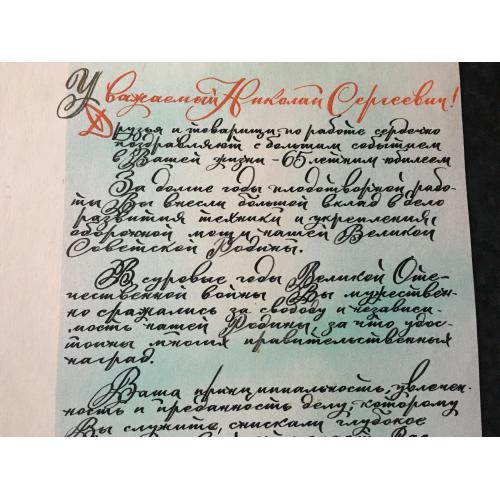 Уважаемый Николай Сергеевич!
Друзья и товарищи по работе сердечно
поздравляют с большим событием
в Вашей жизни - 65 летним юбилеем
За долгие годы плодотворной рабо-
ты Вы внесли большой вклад в дело
развития техники и укрепления
оборонной мощи нашей Великой
Советской Родины.
В суровые годы Великой Оте-
чественной войны Вы мужествен-
но сражались за свободу и независи-
мость нашей Родины, за что удос-
тоины многих правительственных
наград.
Ваша принципиальность, увлечен-
ность и преданность делу, которому
Вы служите, снискали глубокое